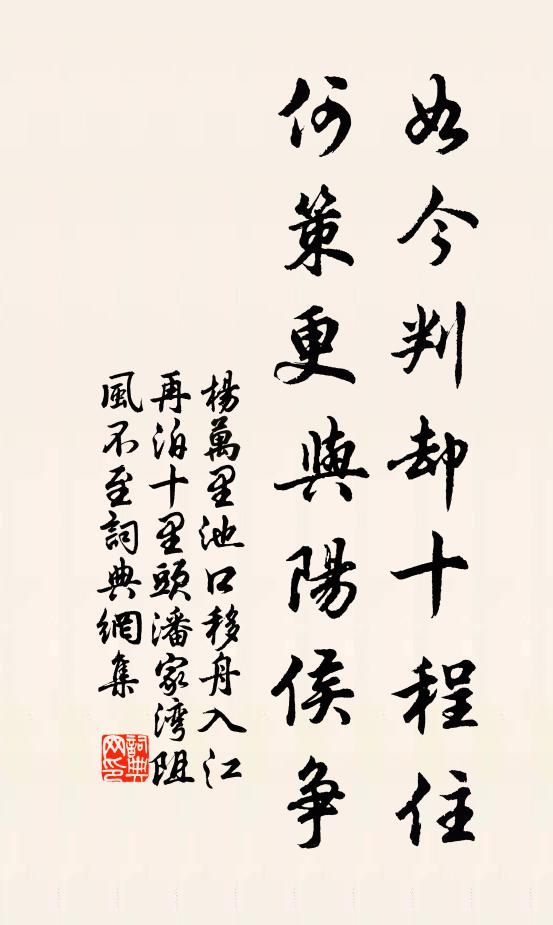 如今判却十程住
何策更與陽侯争
楊萬里池口移舟入江
再泊十里頭潘家灣阻
風不至詞典網集
詞典网印